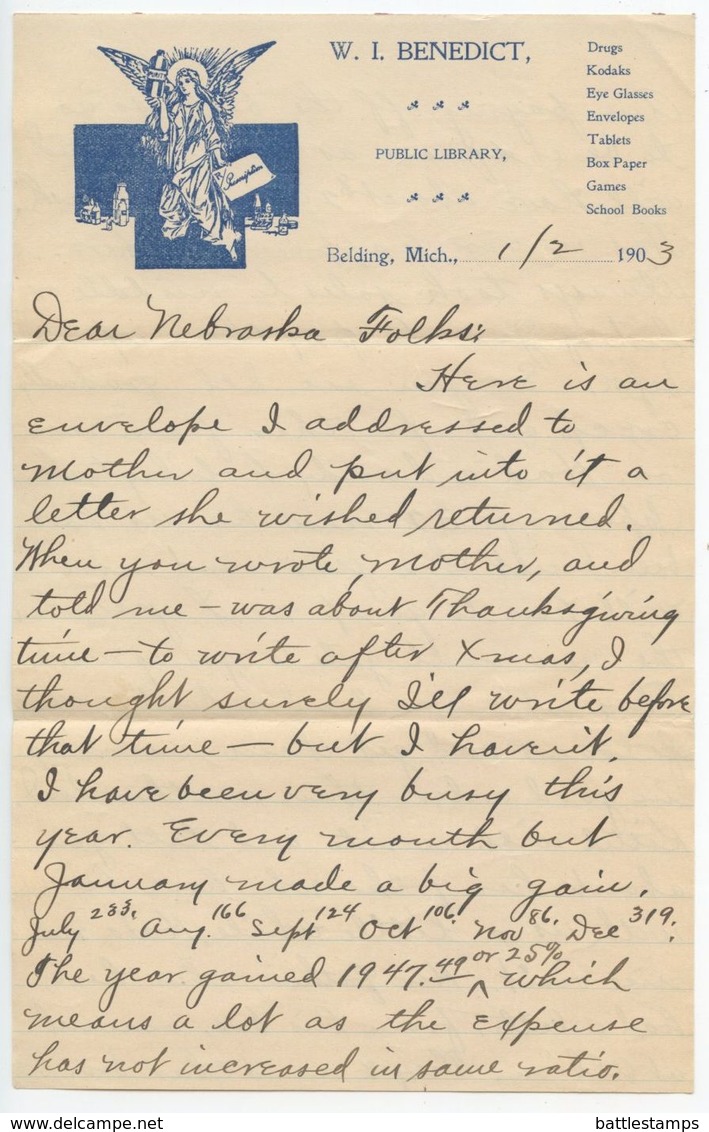 W. I. BENEDICT,
PUBLIC LIBRARY,
Drugs
Kodaks
Eye Glasses
Envelopes
Tablets
Box Paper
Games
School Books
Belding, Mich., 1/2 1903
Dear Nebraska Folks:
Here is an
envelope I addressed to
Mother and put into it a
letter she wished returned.
When you wrote, Mother, and
told me - was about Thanksgiving
time - to write after Xmas, I
thought surely I'll write before
that time - but I haven't.
I have been very busy this
year. Every month but
January made a big gain.
July 233. Aug. 166 Sept 124 Oct 106. Nov 86. Dec 319.
The year gained 1947.49 or 25% which
means a lot as the expense
has not increased in same ratio.
battlestamps